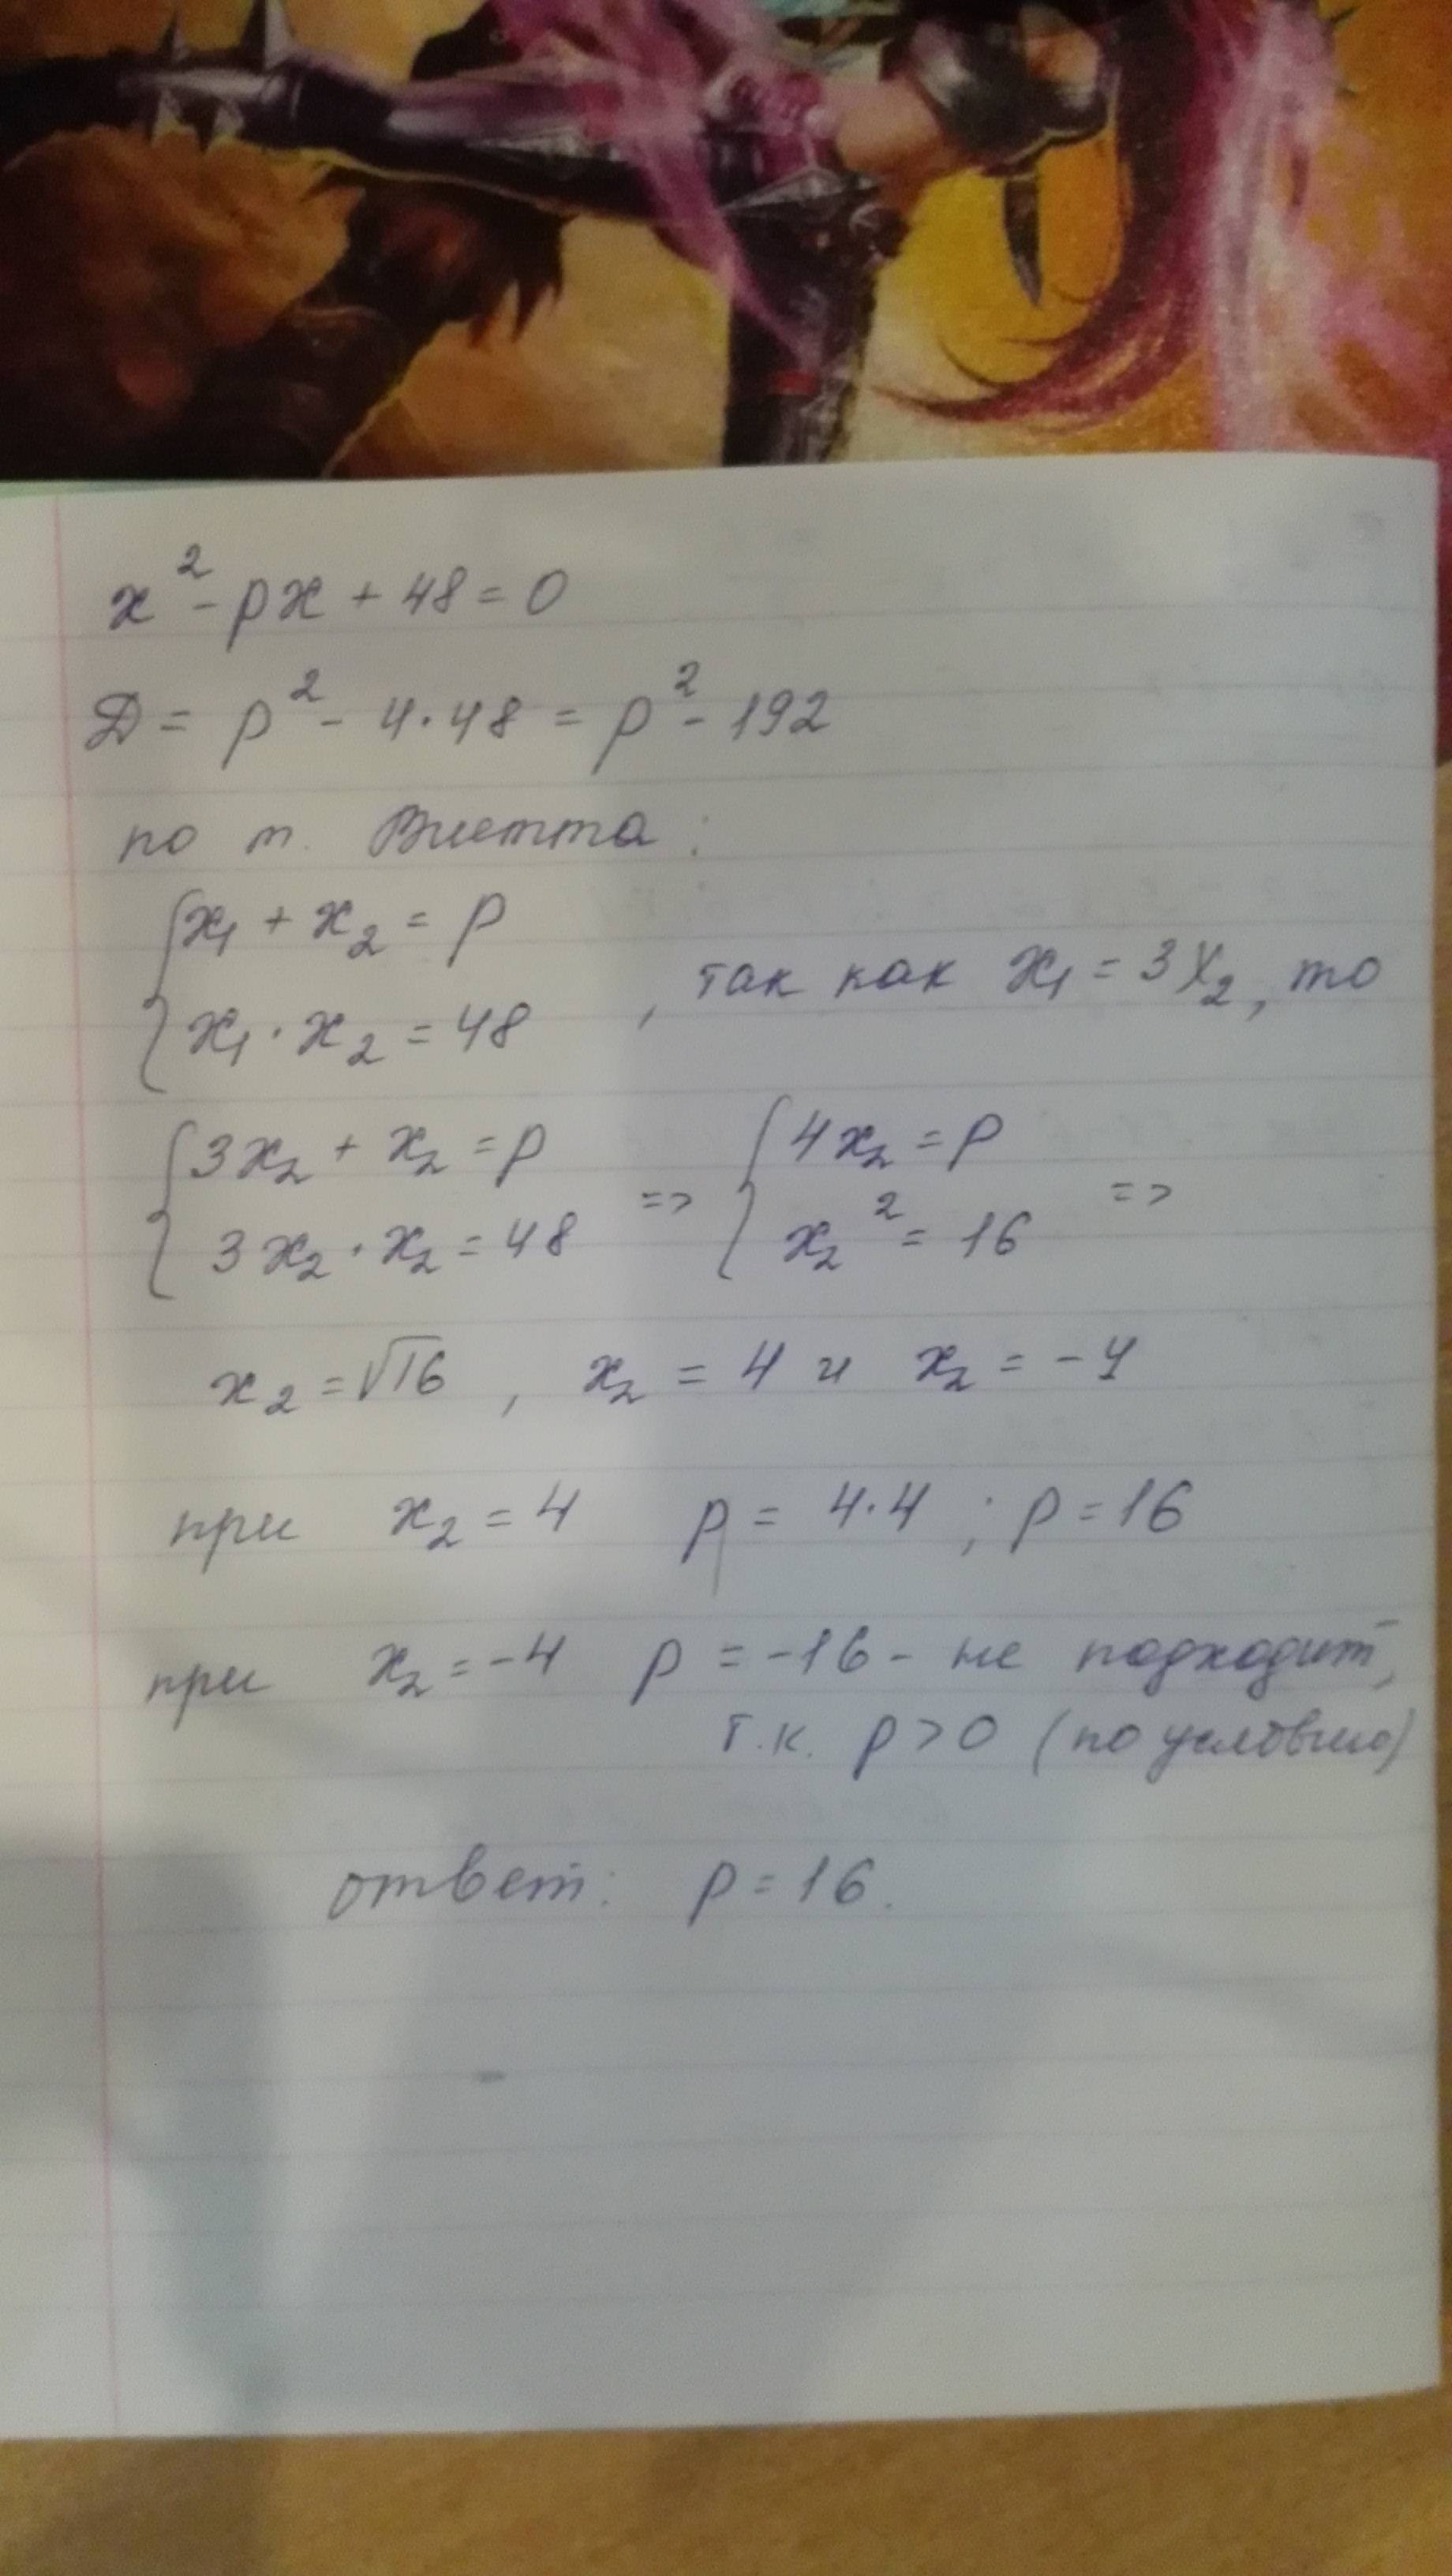 x² - px + 48 = 0
D = p² - 4·48 = p² - 192
по т. Виетта:
{ x₁ + x₂ = p
{ x₁ · x₂ = 48 , так как x₁ = 3x₂, то
{ 3x₂ + x₂ = p => { 4x₂ = p
{ 3x₂ · x₂ = 48 { x₂² = 16 =>
x₂ = √16 , x₂ = 4 и x₂ = -4
при x₂ = 4 p = 4·4 ; p = 16
при x₂ = -4 p = -16 - не подходит,
т.к. p > 0 (по условию)
ответ: p = 16.